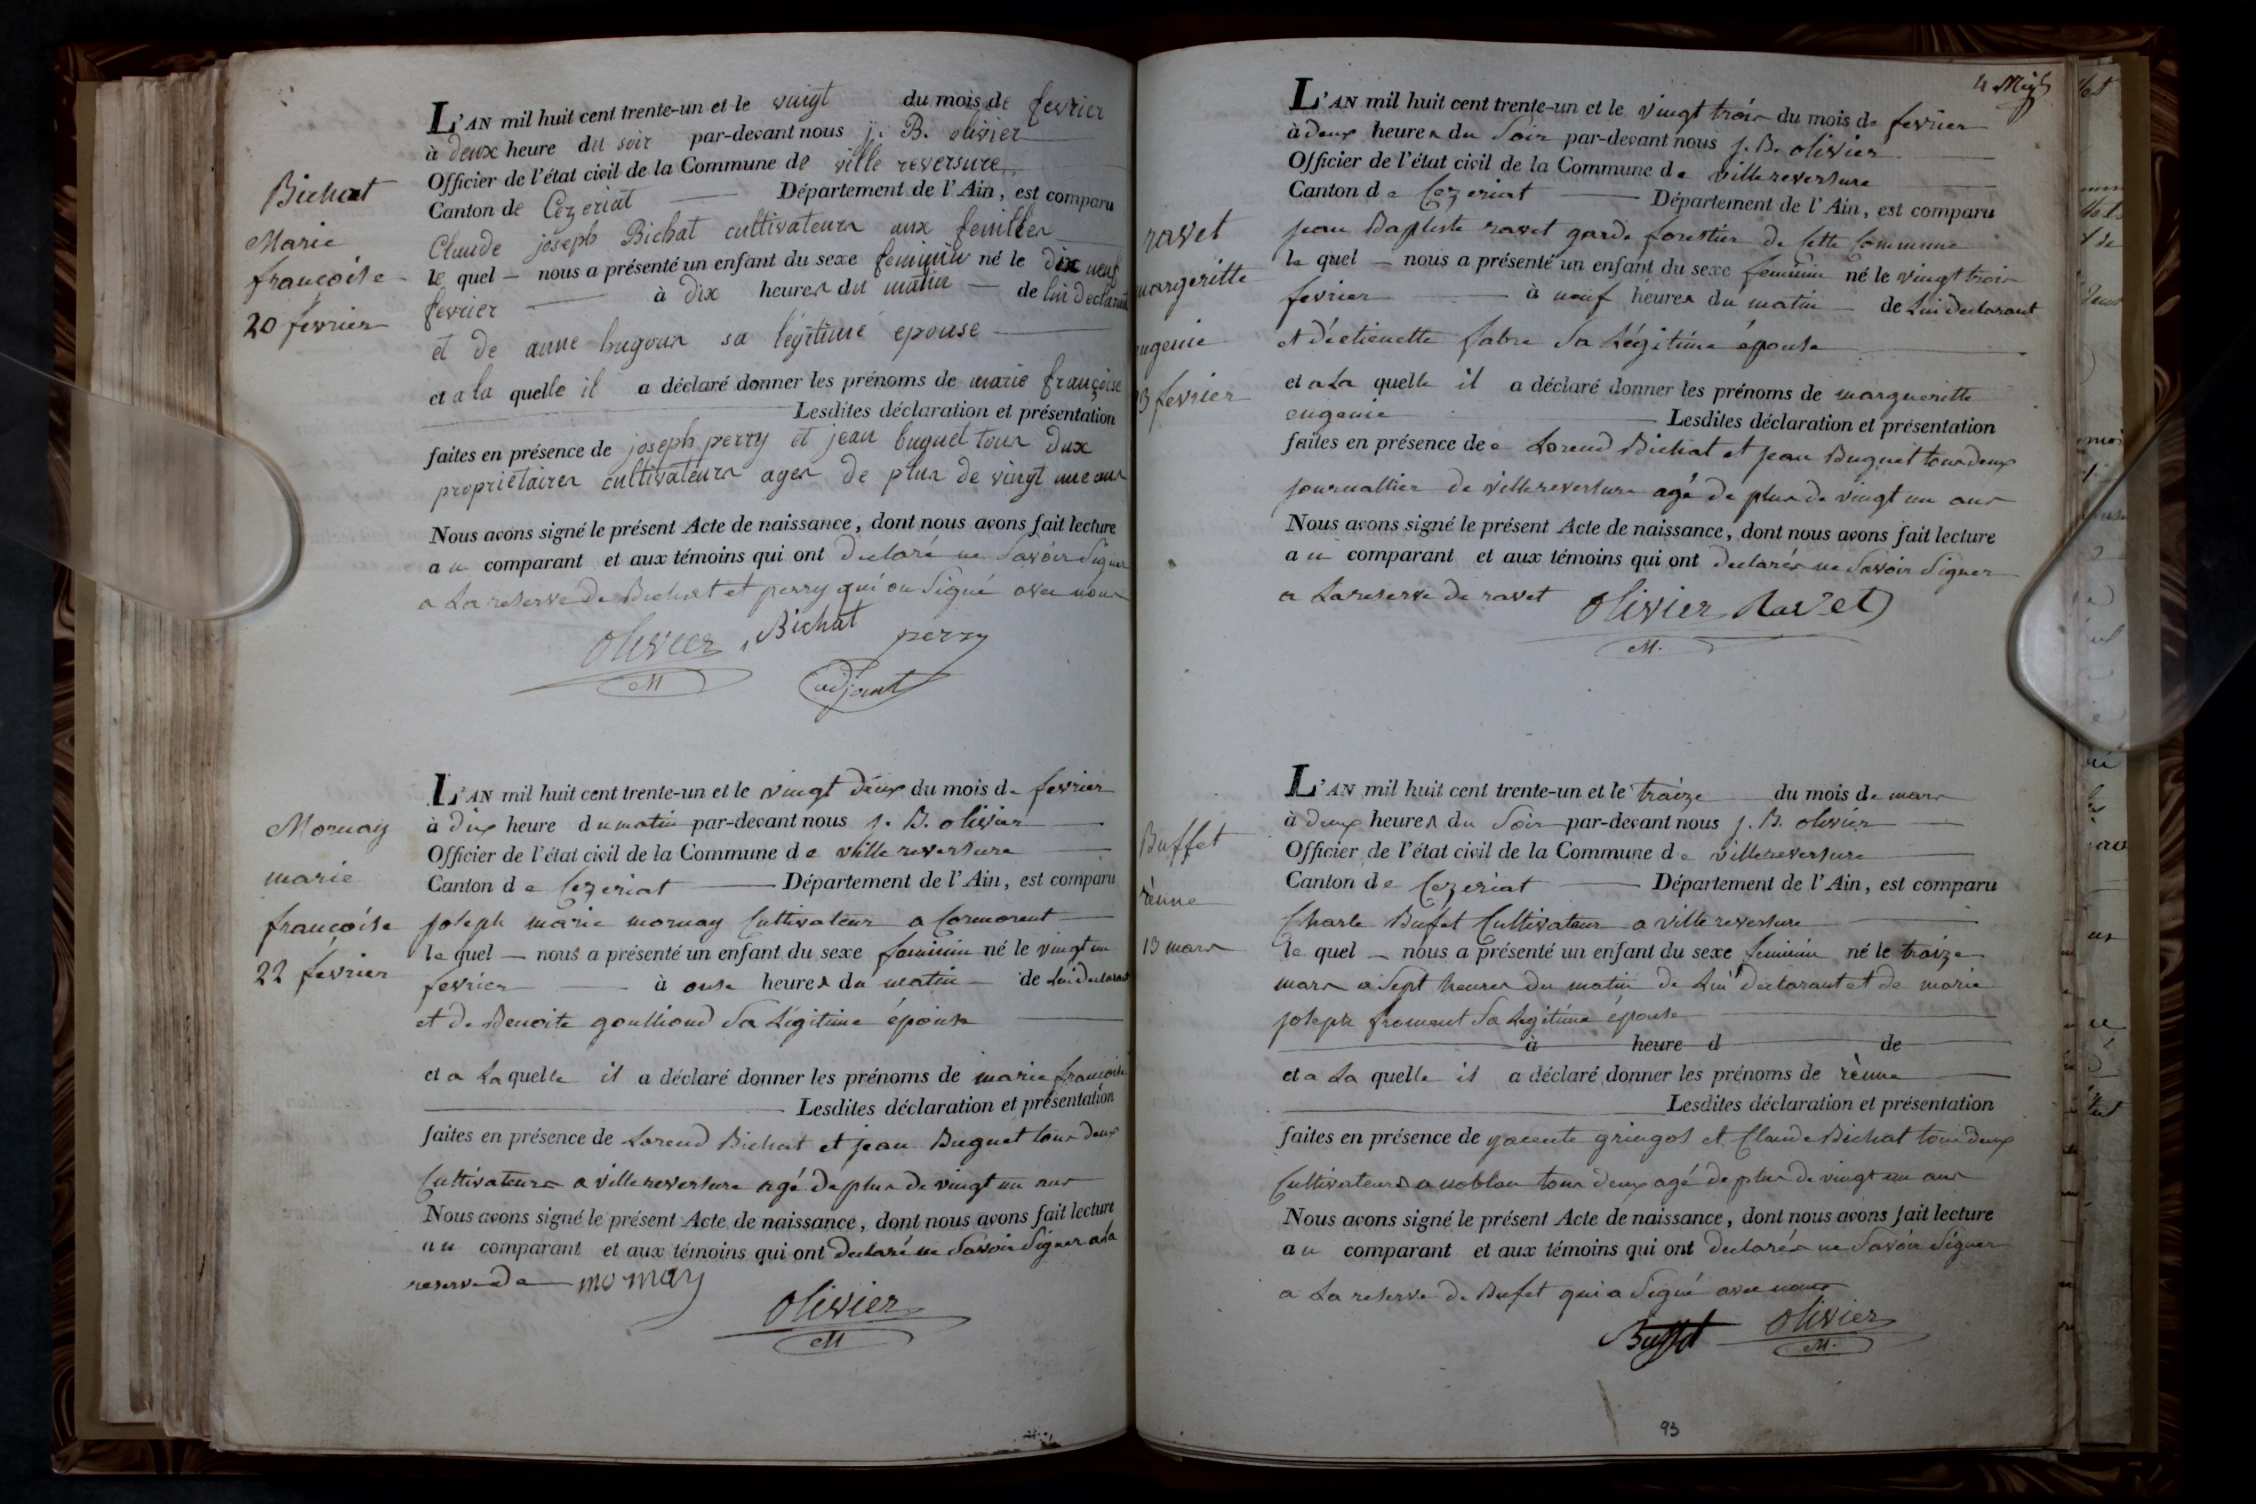 Bichat
Marie
francoise
20 fevrier
L'AN mil huit cent trente-un et le vingt du mois de fevrier
à deux heure du soir par-devant nous j. B. olivier
Officier de l'état civil de la Commune de ville reversure
Canton de Cezeriat Département de l'Ain, est comparu
Claude joseph Bichat cultivateur aux feuilles
le quel nous a présenté un enfant du sexe feminin né le dix neuf
fevrier à dix heures du matin de lui declarant
et de anne hugon sa légitime épouse
et a la quelle il a déclaré donner les prénoms de marie françoise
Lesdites déclaration et présentation
faites en présence de joseph perry et jean buguet tous dux
propriétaires cultivateurs ages de plus de vingt une ans
Nous avons signé le présent Acte de naissance, dont nous avons fait lecture
au comparant et aux témoins qui ont declaré ne Savoir Signer
a La reserve de Bichat et perry qui on Signé avec nous
Olivier Bichat perry
M adjoint
Mornay
marie
françoise
22 fevrier
L'AN mil huit cent trente-un et le vingt deux du mois de fevrier
à dix heure du matin par-devant nous j. B. olivier
Officier de l'état civil de la Commune de villereversure
Canton de Cezeriat Département de l'Ain, est comparu
joseph marie mornay Cultivateur a Cormorent
le quel nous a présenté un enfant du sexe feminin né le vingt un
fevrier à onse heures du matin de Lui declarant
et de Benoite goulliond Sa Légitime épouse
et a La quelle il a déclaré donner les prénoms de marie francoise
Lesdites déclaration et présentation
faites en présence de Lorend Bichat et jean Buguet tous deux
Cultivateurs a villereversure agé de plus de vingt un ans
Nous avons signé le présent Acte de naissance, dont nous avons fait lecture
au comparant et aux témoins qui ont declaré ne Savoir Signer a la
reserve de mornay
Olivier
M
4 
ravet
margeritte
eugenie
23 fevrier
L'AN mil huit cent trente-un et le vingt trois du mois de fevrier
à deux heures du Soir par-devant nous j. B. olivier
Officier de l'état civil de la Commune de villereversure
Canton de Cezeriat Département de l'Ain, est comparu
jean Baptiste ravet garde forestier de Cette Commune
le quel nous a présenté un enfant du sexe feminin né le vingt trois
fevrier à neuf heures du matin de Lui declarant
et d'étiennette fabre Sa Légitime épouse
et a La quelle il a déclaré donner les prénoms de margueritte
eugenie Lesdites déclaration et présentation
faites en présence de Lorend Bichat et jean Buguet tous deux
journallier de villereversure agé de plus de vingt un ans
Nous avons signé le présent Acte de naissance, dont nous avons fait lecture
au comparant et aux témoins qui ont declarés ne Savoir Signer
a La reserve de ravet Olivier Ravet
M.
Buffet
rènne
13 mars
L'AN mil huit cent trente-un et le traize du mois de mars
à deux heures du Soir par-devant nous j. B. olivier
Officier de l'état civil de la Commune de villereversure
Canton de Cezeriat Département de l'Ain, est comparu
Charle Bufet Cultivateur a villereversure
le quel nous a présenté un enfant du sexe feminin né le traize
mars a Sept heures du matin de Lui declarant et de marie
joseph froment Sa Legitime épouse
à heure d de
et a La quelle il a déclaré donner les prénoms de rènne
Lesdites déclaration et présentation
faites en présence de yacente gringos et Claude Bichat tous deux
Cultivateurs a noblan tous deux agé de plus de vingt un ans
Nous avons signé le présent Acte de naissance, dont nous avons fait lecture
au comparant et aux témoins qui ont declarés ne Savoir Signer
a La reserve de Bufet qui a Signé avec nous
Buffet Olivier
M.
93